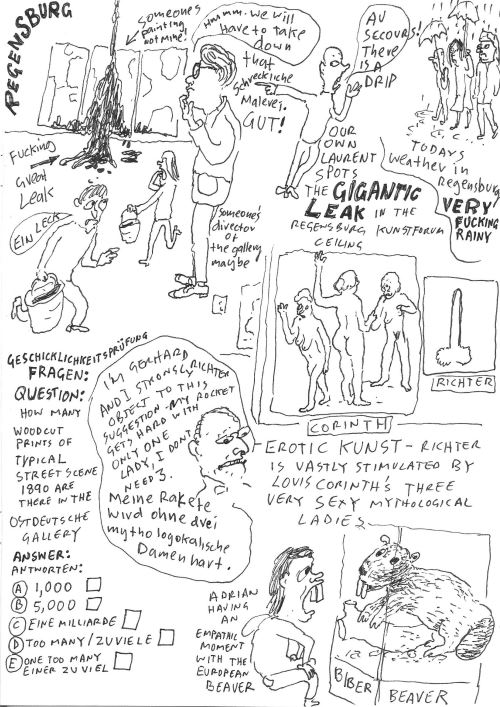 REGENSBURG
SOMEONES
PAINTING
NOT MINE!
Hmmm. We will
Have to take
down
that
schreckliche
Malerei.
GUT!
AU
SECOURS!
THERE
IS A
DRIP
FUCKING
Great
Leak
EIN LECK
Someone's
director
of
the gallery
maybe
OUR
OWN
LAURENT
SPOTS
THE GIGANTIC
LEAK IN THE
REGENSBURG KUNSTFORUM
CEILING
TODAYS
weather in
Regensburg
VERY
FUCKING
RAINY
RICHTER
CORINTH
GESCHICKLICHKEITSPRÜFUNG
FRAGEN:
QUESTION:
HOW MANY
WOODCUT
PRINTS OF
TYPICAL
STREET SCENE
1890 ARE
THERE IN THE
OSTDEUTSCHE
GALLERY
ANSWER:
ANTWORTEN:
A 1,000
B 5,000
C EINE MILLIARDE
D TOO MANY/ZUVIELE
E ONE TOO MANY
EINER ZU VIEL
I'M GERHARD
RICHTER
AND I STRONGLY
OBJECT TO THIS
SUGGESTION-MY ROCKET
GETS HARD WITH
ONLY ONE
LADY, I DONT
NEED 3.
Meine Rakete
wird ohne drei
mythologokalische
Damen hart.
EROTIC KUNST - RICHTER
IS VASTLY STIMULATED BY
LOUIS CORINTH'S THREE
VERY SEXY MYTHOLOGICAL
LADIES
ADRIAN
HAVING
AN
EMPATHIC
MOMENT
WITH THE
EUROPEAN
BEAVER
BIBER
BEAVER